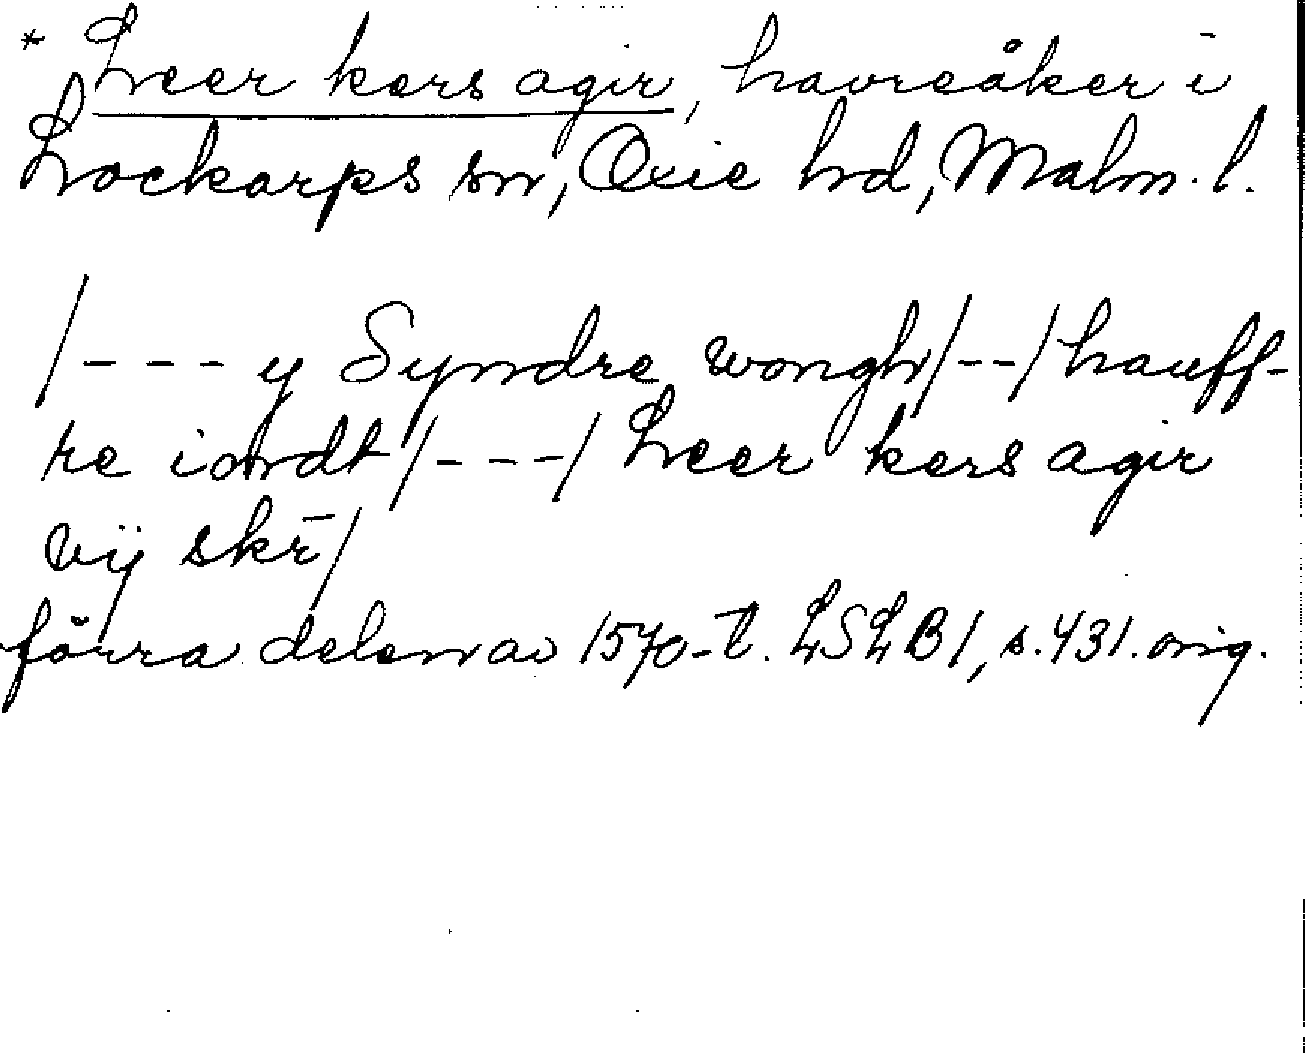 * Leer kers agir, havreåker i
Lockarps sn, Oxie hd, Malm. l.
/--- y Syndre wongh/--/hauff-
re iordt/---/ Leer kers agir
vij skr̄/
förra delen av 1570-t. LSLB1, s. 431. orig.